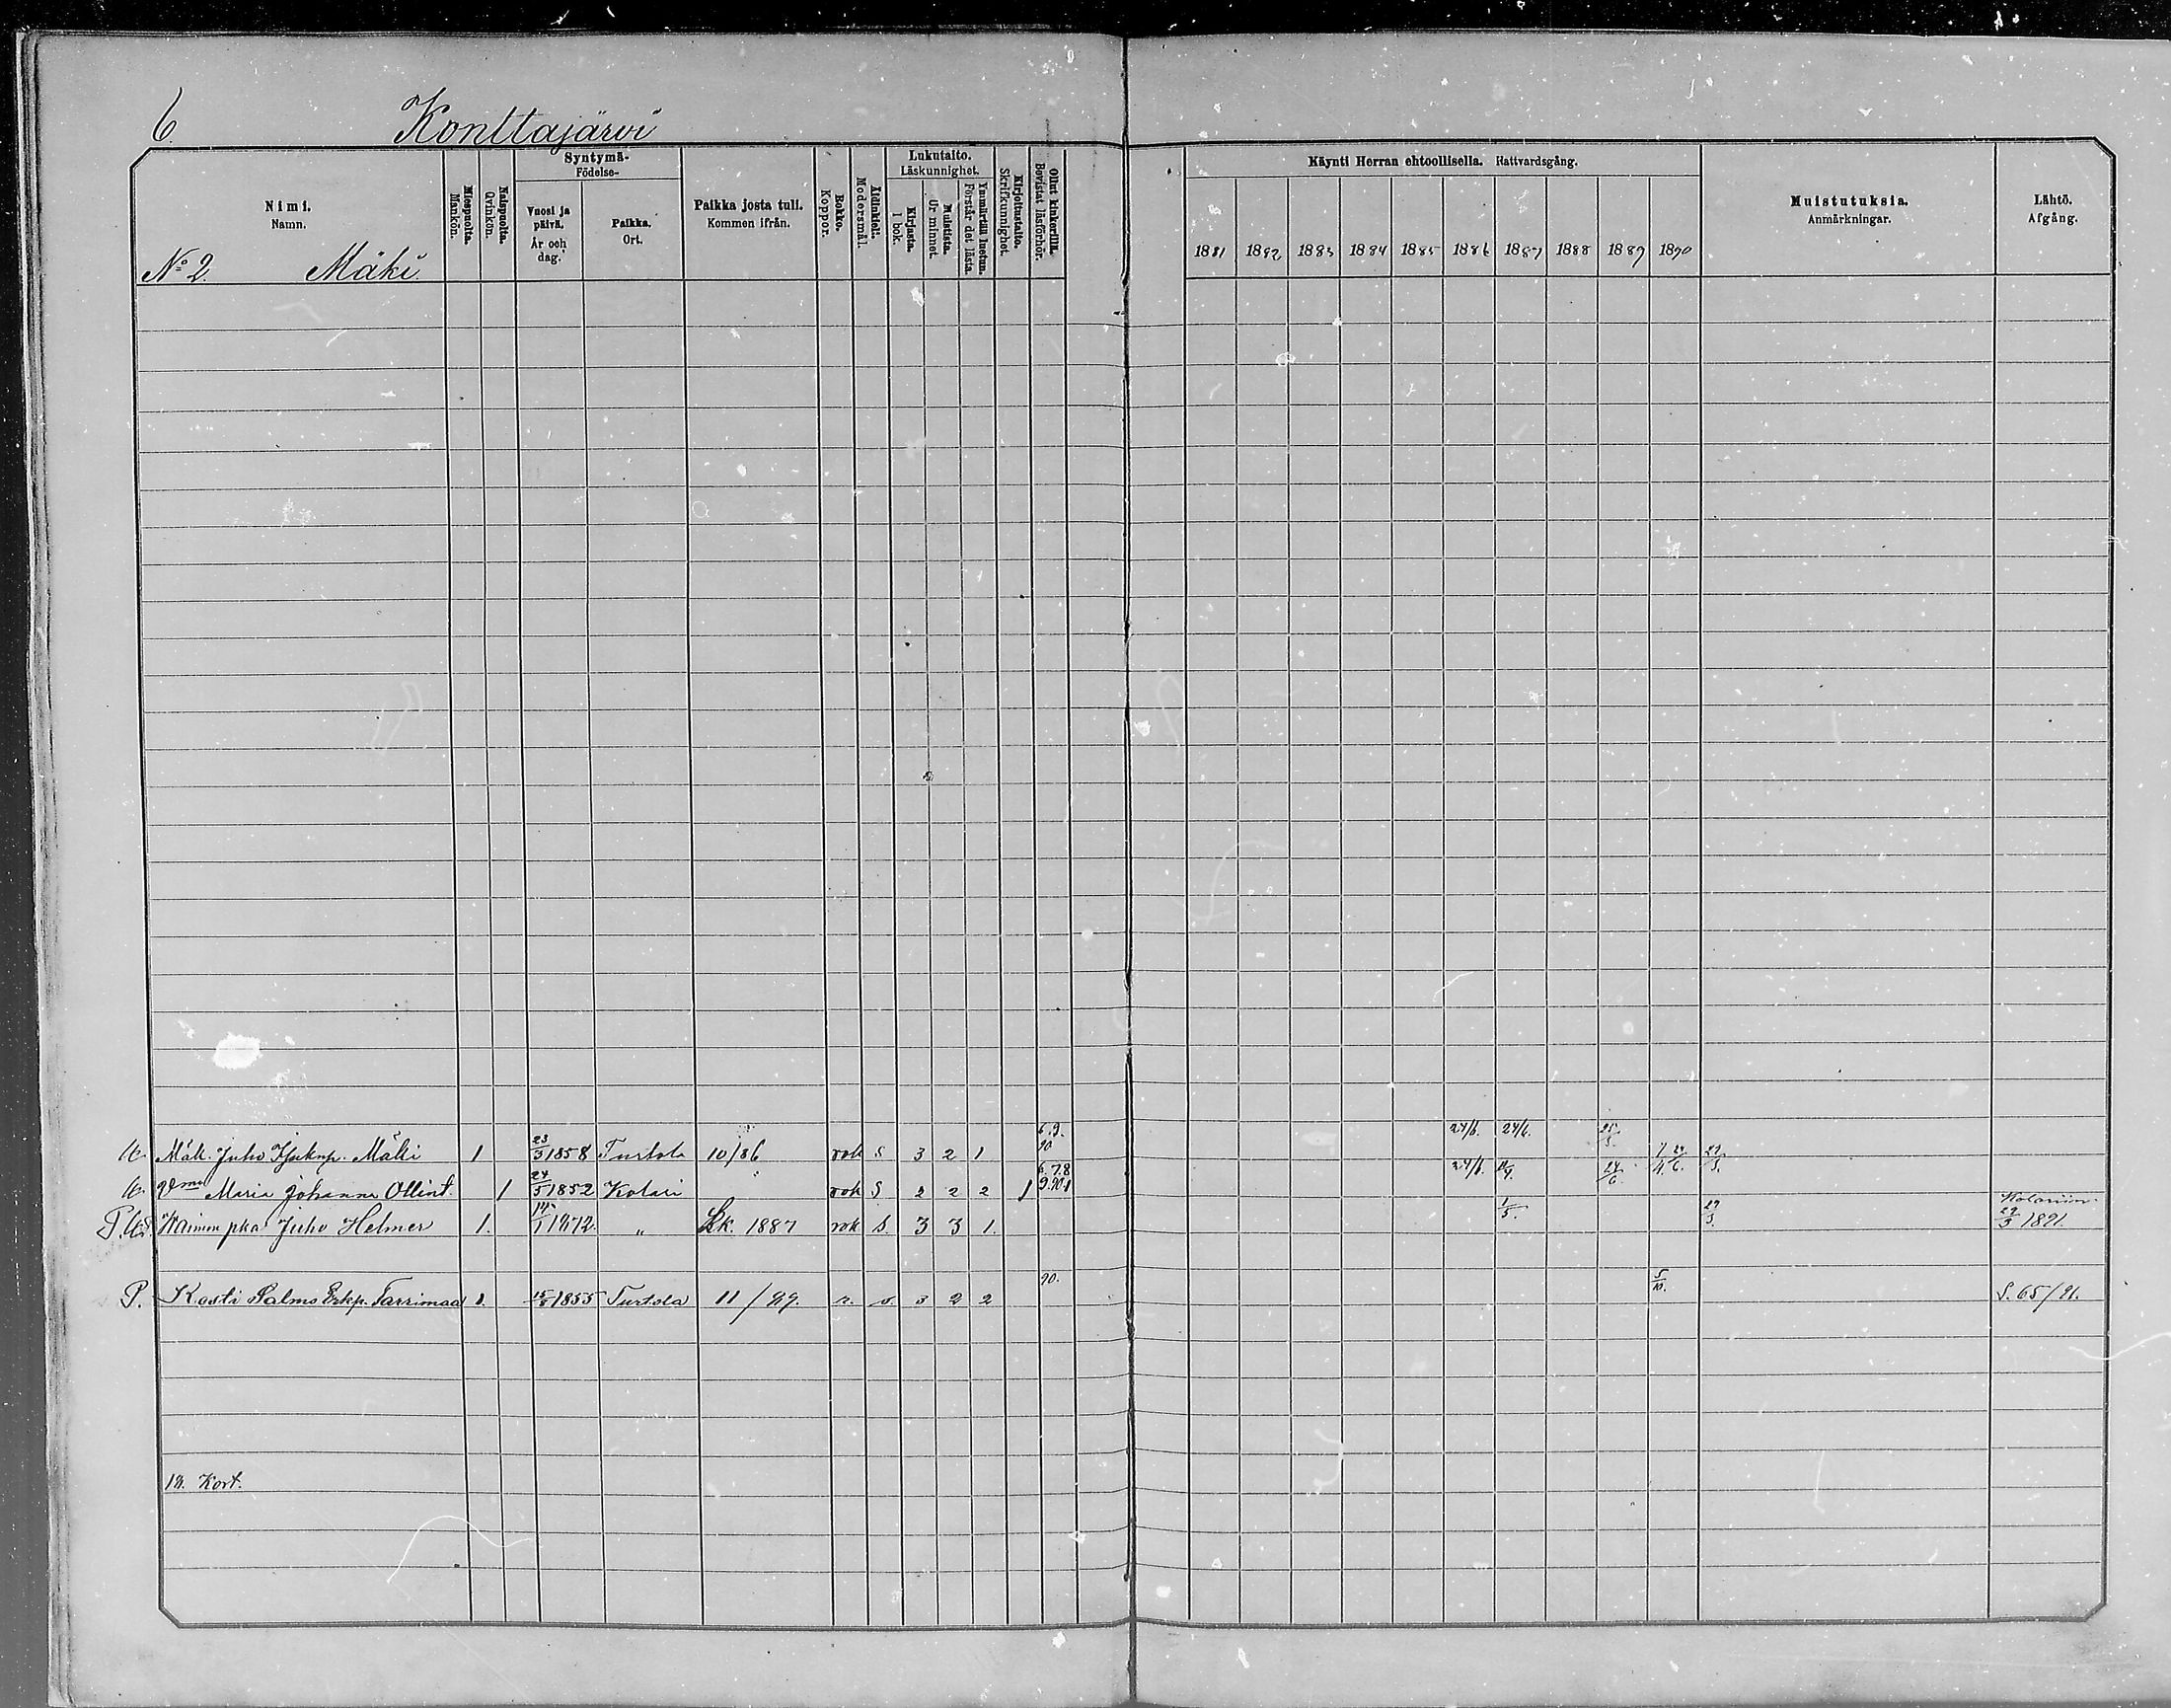 6. Konttajärvi
Nimi.
Namn.
Miespuolta.
Mankön.
Naispuolta.
Qvinkön.
Syntymä-
Födelse-
Vuosi ja
päivä.
År och
dag.
Paikka.
Ort.
Paikka josta tuli.
Kommen ifrån.
Rokko.
Koppor.
Äidinkieli.
Modersmål.
Lukutaito.
Läskunnighet.
Kirjasta.
I bok.
Muistista.
Ur minnet.
Ymmärtää luetun.
Förstår det lästa.
Kirjoitustaito.
Skrifkunnighet.
Ollut kinkerillä.
Bevistat läsförhör.
Käynti Herran ehtoollisella. Nattvardsgång.
1881 1882 1883 1884 1885 1886 1887 1888 1889 1890
Muistutuksia.
Anmärkningar.
Lähtö.
Afgång.
No 2. Mäki.
Mäk. Juho Mäki 1 23/3 1858 Turtola 10/86 rok s 3 2 1 6.9. 90 24/6. 24/6.
Maria Johanna Ollint. 1 24/5 1852 Kolari " rok s 2 2 2 1 6.7.8 9.90.1 24/6
Juho Helmer 1. 1872. " Lk. 1887 rok s. 3 3 1. 1/5. 29/3. Kolariin. 29/3 1891.
P. Kosti Salmo Erkp. Tarrimaa 1. 15/8 1855 Turtola 11/89. r. s. 3 2 2 90. 5/10. S. 65/91.
Kort.